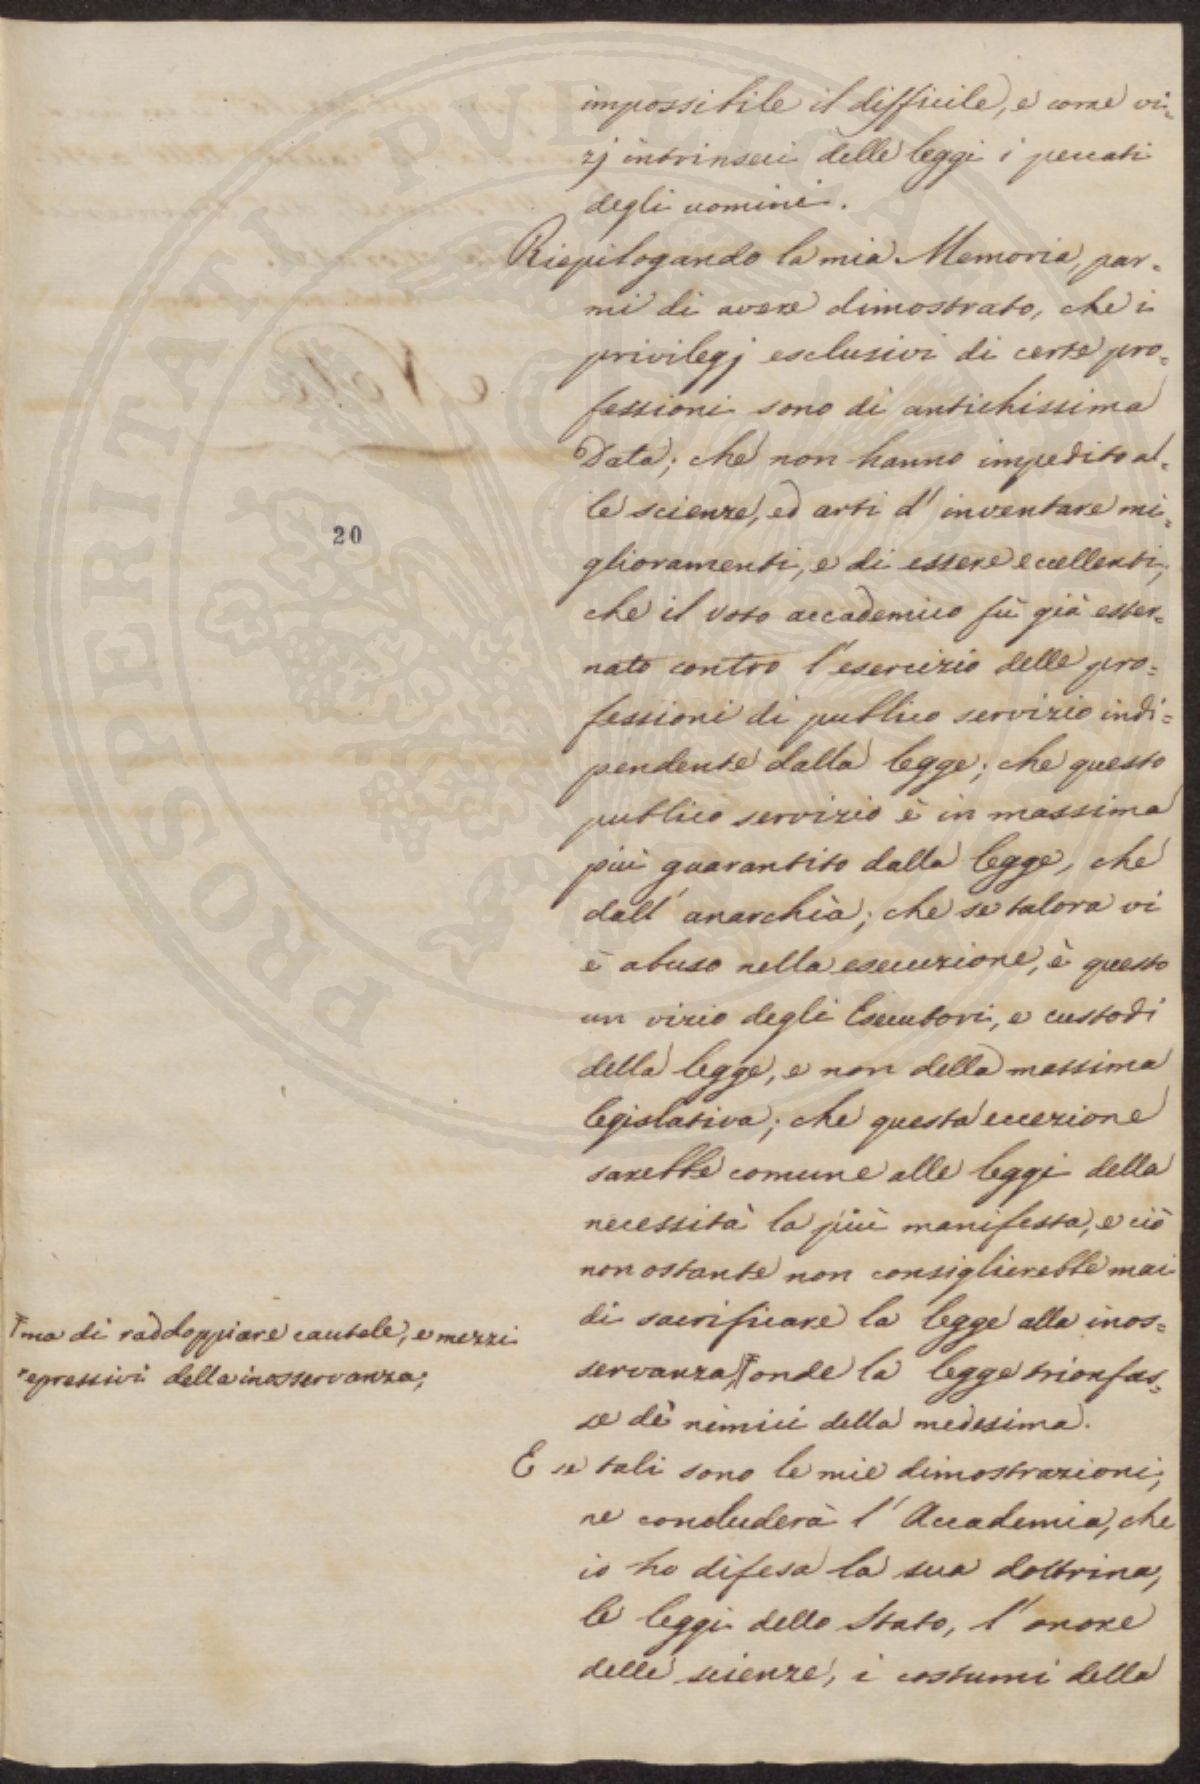 impossibile il difficile, e come vi=
zj intrinseci delle leggi i peccati
degli uomini.
Riepilogando la mia Memoria, par=
mi di avere dimostrato, che i
privilegj esclusivi di certe pro=
fessioni sono di antichissima
Data; che non hanno impedito al=
le scienze, ed arti d' inventare mi=
glioramenti, e di essere eccellenti;
20
che il voto accademico fù già ester=
nato contro l'esercizio delle pro=
fessioni di publico servizio indi=
pendente dalla legge; che questo
publico servizio è in massima
più guarantito dalla legge, che
dall' anarchia; che se talora vi
è abuso nella esecuzione, è questo
un vizio degli Esecutori, e custodi
della legge, e non della massima
legislativa; che questa eccezione
sarebbe comune alle leggi della
necessità la più manifesta, e ciò
non ostante non consiglierebbe mai
di sacrificare la legge alla inos=
servanza, onde la legge trionfas=
se dè nimici della medesima.
ma di raddoppiare cautele, e mezzi
repressivi della inosservanza;
E se tali sono le mie dimostrazioni,
ne concluderà l' Accademia, che
io ho difesa la sua dottrina,
le leggi dello Stato, l' onore
delle scienze, i costumi della
PROSPERITATI PVBLICAE